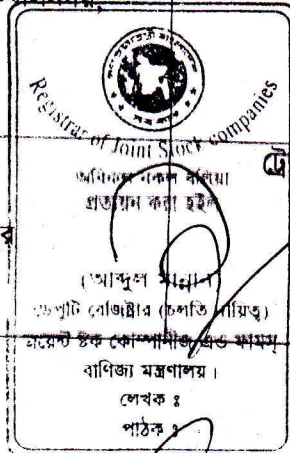 Registrar of Joint Stock Companies
অবিকল নকল বলিয়া
প্রত্যয়ন করা হইল
(আব্দুল মান্নান)
ডেপুটি রেজিষ্ট্রার (চলতি দায়িত্ব)
জয়েন্ট ষ্টক কোম্পানীজ এন্ড ফার্মস্
বাণিজ্য মন্ত্রণালয়।
লেখক ঃ
পাঠক ঃ